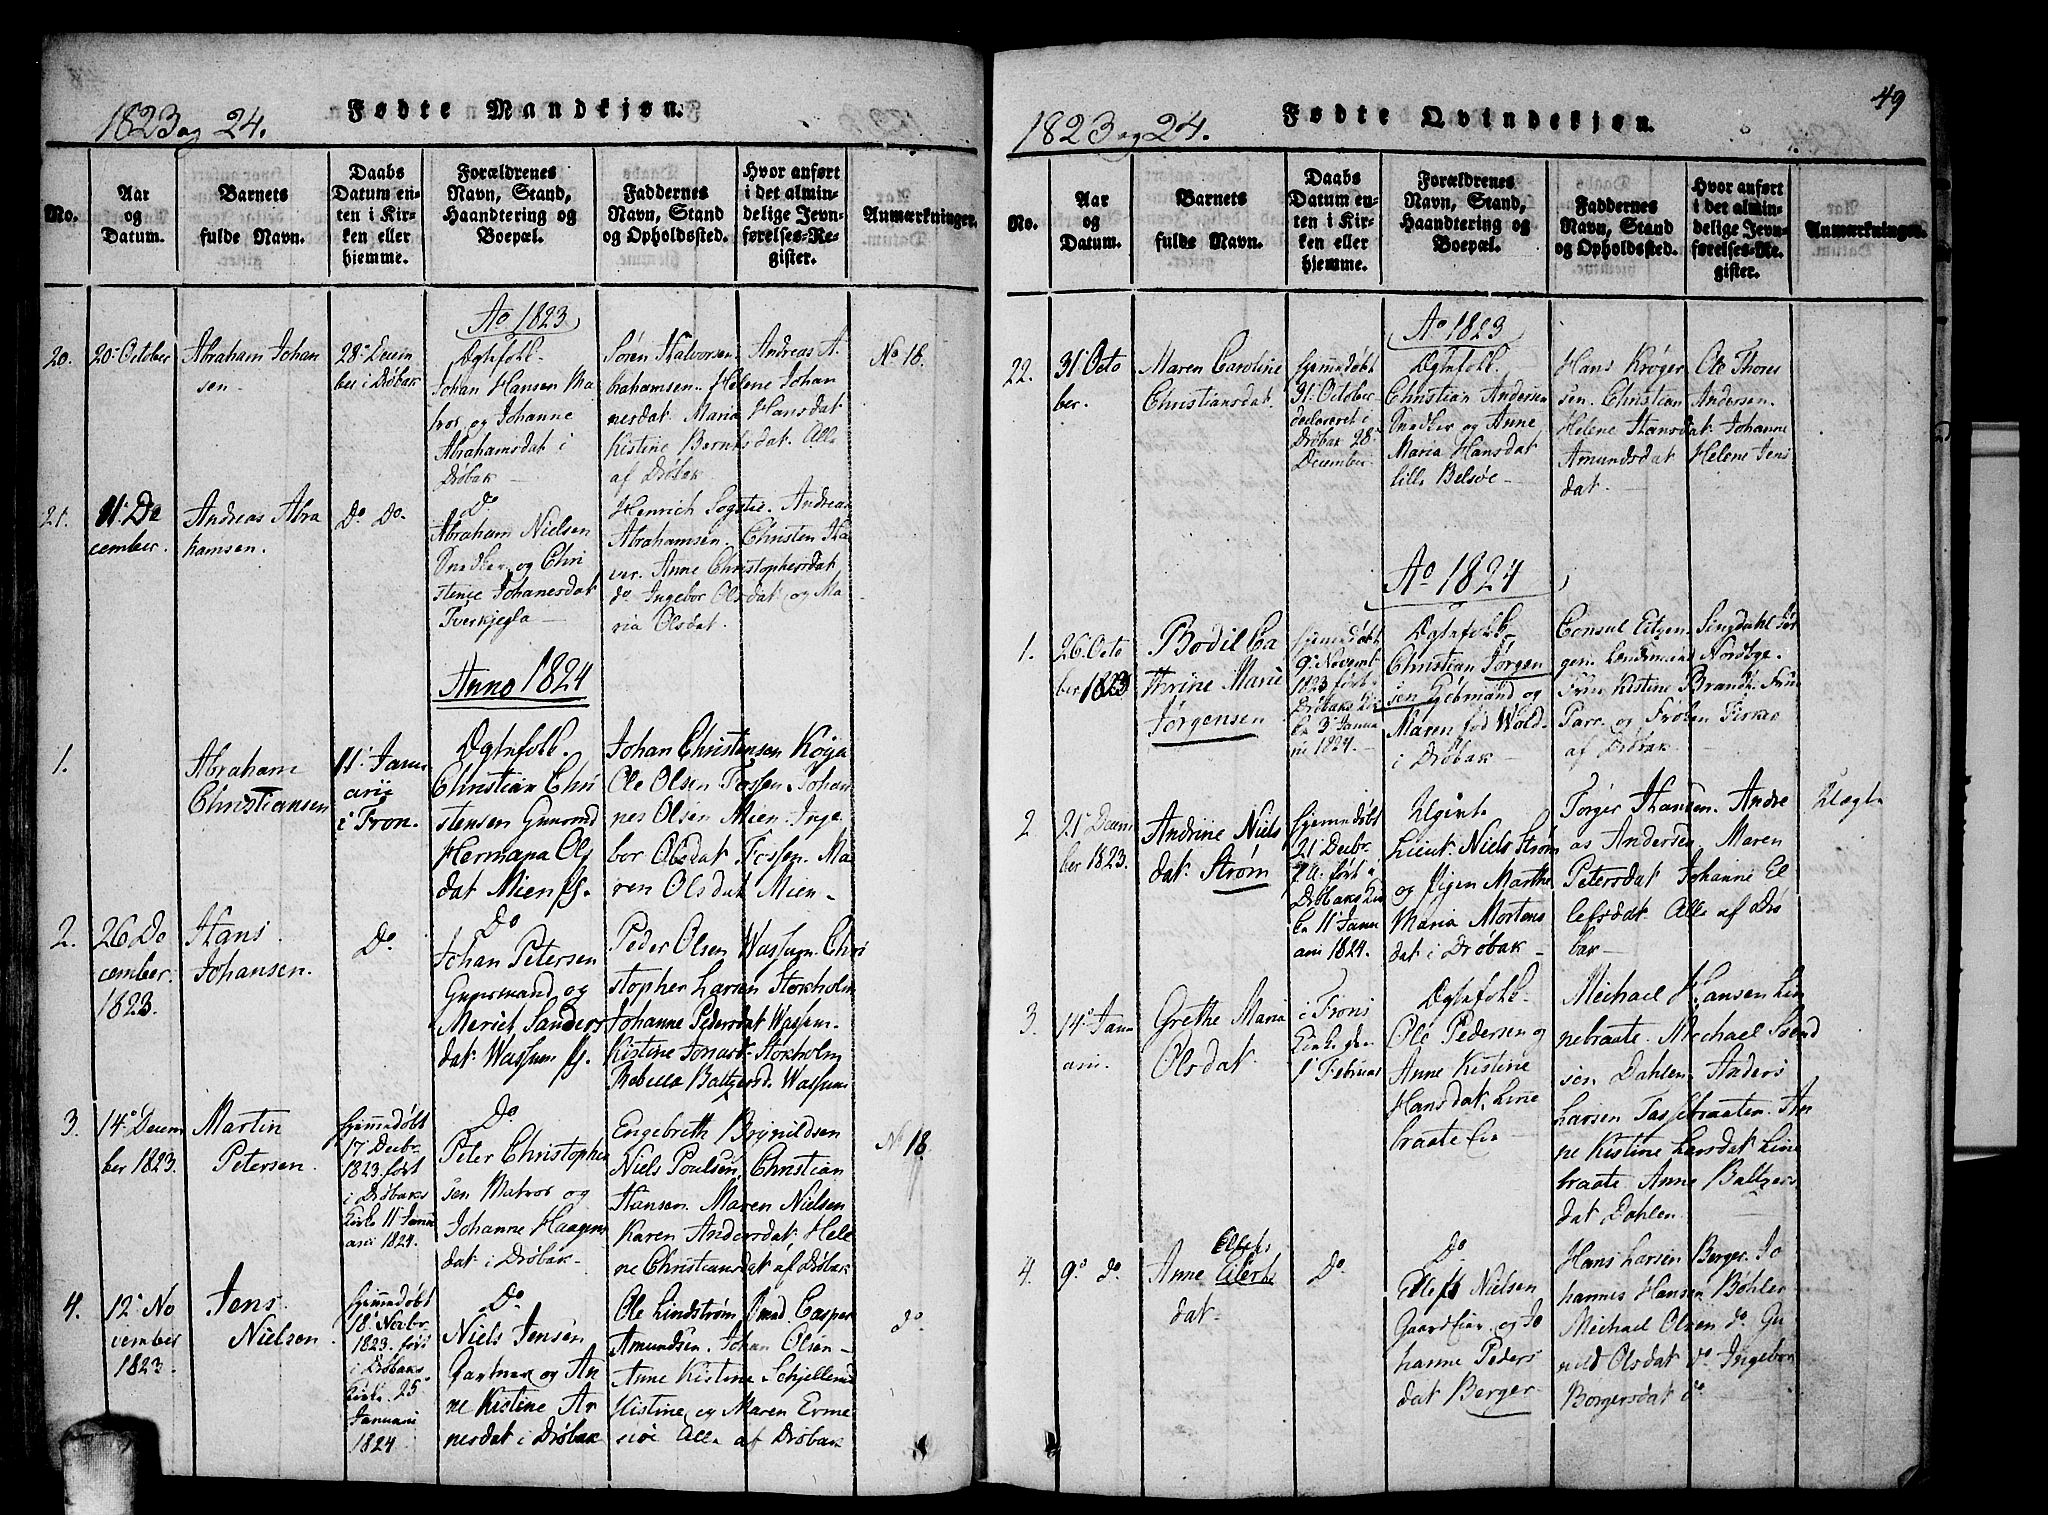 1823 og 24.
Fødte Mandkjøn.
No.
Aar
og
Datum.
Barnets
fulde Navn.
Daabs
Datum en-
ten i Kir-
ken eller
hjemme.
Forældrenes
Navn, Stand,
Haandtering og
Boepæl.
Faddernes
Navn, Stand
og Opholdssted.
Hvor anført
i det almin-
delige Jevn-
førelses-Re-
gister.
Anmærkninger.
Ao 1823
20.
20de October
Abraham Johan
sen
28de Decem
ber i Drøbak
Ægtefolk
Johan Hansen Ma
tros og Johanne
Abrahamsdat i
Drøbak
Søren Halvorsen Andreas A
brahamsen. Helene Johan
nesdat Maria Hansdat
Kistine Berntsdat. Alle
af Drøbak
No 18.
21.
11. De
cember.
Andreas Abra
hamsen.
Do Do
Do
Abraham Nielsen
Snedker og Chri
stence Johanesdat
Tverkjegla
Henrich Sogstie. Andreas
Abrahamsen. Christen Ha
ver. Anne Christophersdat
do Ingebor Olsdat og Ma
ria Olsdat.
Anno 1824
1.
Abraham
Christiansen
11te Janu
arii
i Fron.
Ægtefolk.
Christian Chri
stensen Gunsmd
Hermana Ols
dat Mien
Johan Christensen Koja
Ole Olsen Fossen. Johan
nes Olsen Mien. Inge
bor Olsdat Fossen. Ma
ren Olsdat Mien
2.
26 De
cember.
1823.
Hans
Johansen.
Do
Do
Johan Petersen
Gunsmand og
Meriet Sanders
dat Wassum
Peder Olsen Wassum. Chri
stopher Larsen Stokholm
Johanne Pedersdat Wassum
Kistine Jonasd. Stokholm
Rebecka Baltzersd. Wassum
3.
14de Decem
ber 1823.
Martin
Petersen.
Hjemmedøbt
17 Decbr
1823. ført
i Drøbaks
Kirke 11te Janu
arii 1824.
Do
Peter Christopher
sen Matros og
Johanne Haagens
dat i Drøbak
Engebreth Brynildsen
Niels Poulsen Christian
Hansen. Maren Nielsen
Karen Andersdat. Hele
ne Christiansdat af Drøbak
No 18.
4.
12te No
vember
1823.
Jens
Nielsen
Hjemmedøbt
18. Novbr.
1823. ført
i Drøbaks
Kirke 25
Januarii
1824
Do
Niels Jensen
Gartner og An
ne Kistine Ar
nesdat i Drøbak
Ole Lindstrøm Casper
Amundsen. Johan Olsen
Anne Kistine Schjellerud
Kistine og Maren Erme
sioe Alle af Drøbak
do
1823 og 24.
Fødte Qvindekjøn.
49
No.
Aar
og
Datum.
Barnets
fulde Navn.
Daabs
Datum en-
ten i Kir-
ken eller
hjemme.
Forældrenes
Navn, Stand,
Haandtering og
Boepæl.
Faddernes
Navn, Stand
og Opholdssted.
Hvor anført
i det almin-
delige Jevn-
førelses-Re-
gister.
Anmærkninger.
Ao 1823
22.
31te Octo
ber.
Maren Caroline
Christiansdat.
Hjemmedøbt
31te October
declareret i
Drøbak 28de
December
Ægtefolk
Christian Andersen
Snedker og Anne
Maria Hansdat
lille Belsøe
Hans Krøger Ole Thore
sen. Christian Andersen.
Helene Hansdat. Johanne
Amundsdat Helene Jens
dat.
Ao 1824
1.
26 Octo
ber 1823
Bodil Ca
thrine Marie
Jørgensen
Hjemmedøbt
9de Novemb
1823 ført
Drøbaks Kir
ke 3de Janua
rii 1824.
Ægtefolk
Christian Jørgen
sen Kjøbmand og
Maren fød Wold
i Drøbak
Consul Eitzen. Singdahl Jør
gen. Lensmand Nordbye.
Frue Kistine Brandt. Frue
Parr. og Frøken Fiske
af Drøbak
2
21de Decem
ber 1823.
Andrine Niels
dat. Strøm
Hjemmedøbt
21 Decbr.
f. A: ført i
Drøbaks Kir
ke 11te Janu
arii 1824.
Uægte
Lieut. Niels Strøm
og Pigen Marthe
Maria Mortens
dat i Drøbak
Torger Hansen. Andre
as Andersen Maren
Petersdat Johanne El
lefsdat. Alle af Drø
bak
Uægte
3.
14de Janu
arii.
Grethe Maria
Olsdat
i Frons
Kirke den
1 Februar
Ægtefolk
Ole Pedersen og
Anne Kistine
Hansdat. Linne
braate Eie
Michael Hansen Lin
nebraate. Michael Svend
sen Dahlen. Anders
Larsen Tassebraaten. An
ne Kistine Larsdat Linne
braate Anne Baltzers
dat Dahlen
4.
9de do
Ellefs
Anne Eilerts
dat
Do
Do
Ellef Nielsen
Gaardeier og Jo
hanne Peders
dat Berger
Hans Larsen Berger. Jo
hannes Hansen Bøhler
Michael Olsen do Gu
nild Olsdat do Ingebor
Borgersdat do